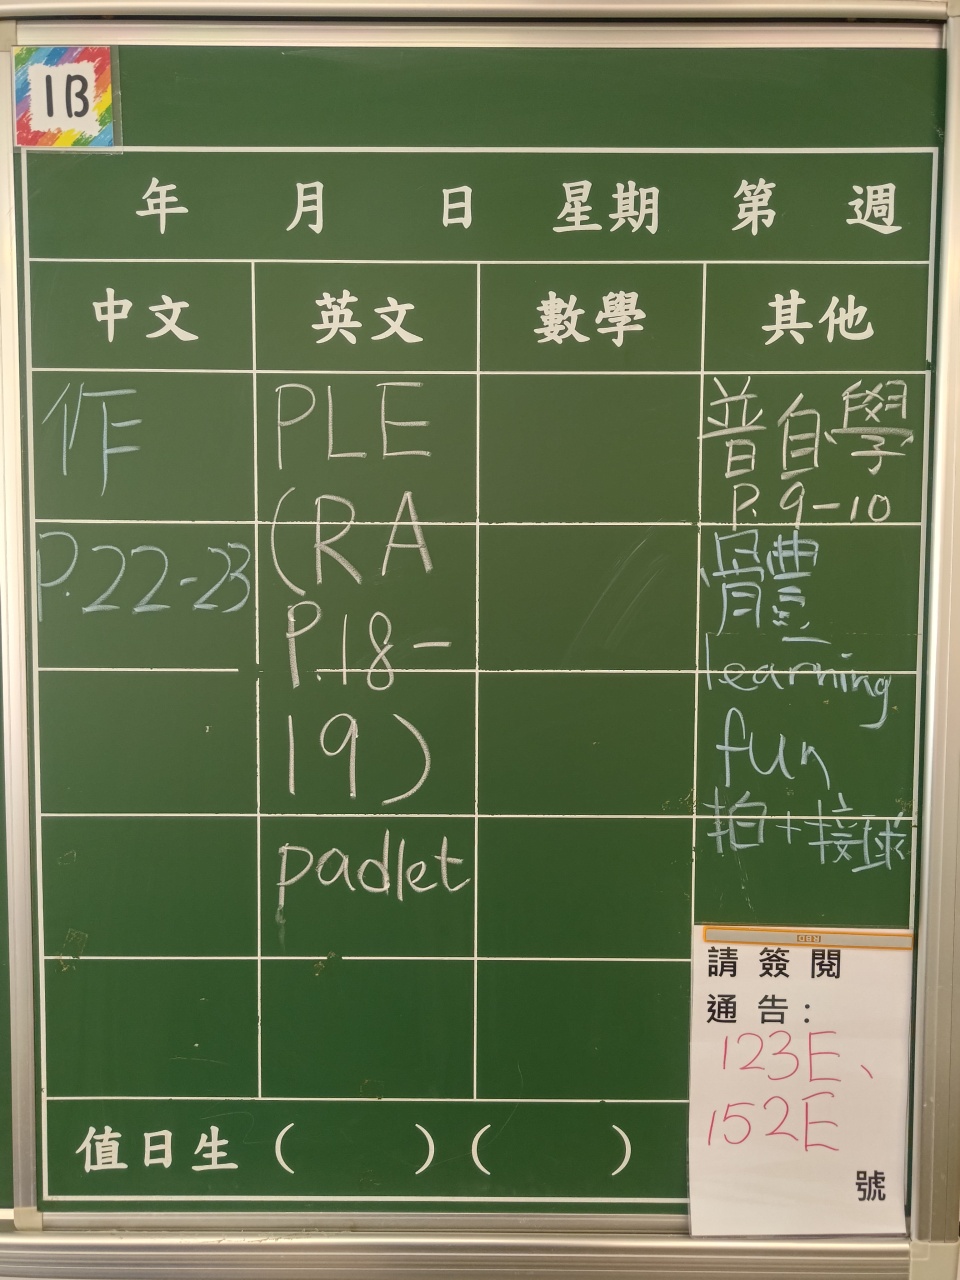 1B
年 月 日 星期 第 週
中文 英文 數學 其他
作
P.22-23
PLE
(RA
P.18-
19)
padlet
普自學
P.9-10
體
learning
fun
拍+接球
請簽閱
通告：
123E、
152E
號
值日生 ( ) ( )